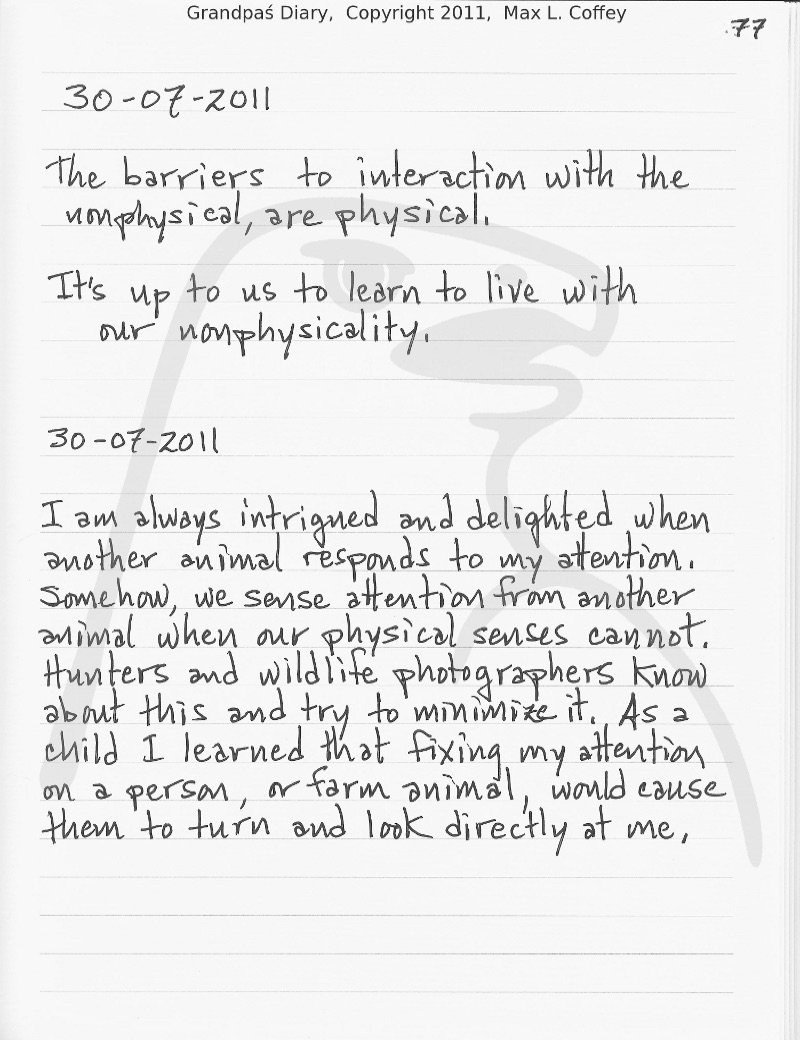 Grandpaś Diary, Copyright 2011, Max L. Coffey
77
30-07-2011
The barriers to interaction with the
nonphysical, are physical.
It's up to us to learn to live with
our nonphysicality.
30-07-2011
I am always intrigued and delighted when
another animal responds to my attention.
Somehow, we sense attention from another
animal when our physical senses cannot.
Hunters and wildlife photographers know
about this and try to minimize it. As a
child I learned that fixing my attention
on a person, or farm animal, would cause
them to turn and look directly at me,